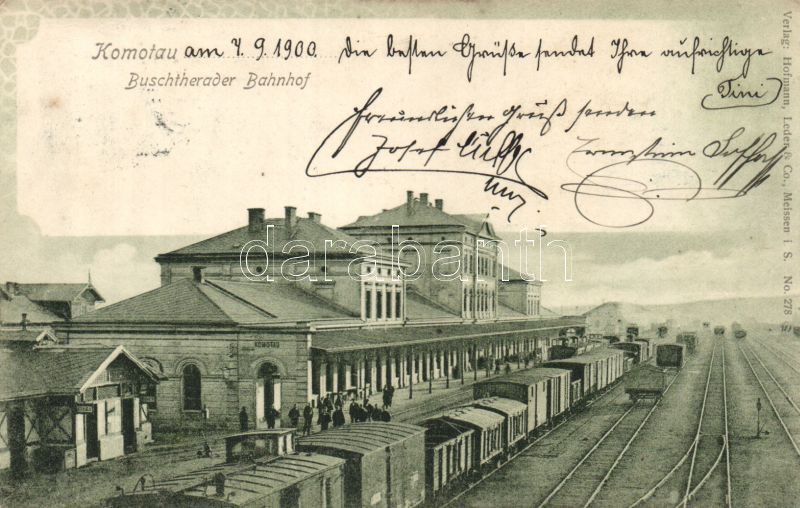 Komotau am 7.9.1900. Die besten Grüße sendet Ihre aufrichtige
Buschtherader Bahnhof
Tini
Freundlichen Gruß senden
Josef
Ernestine
KOMOTAU
darabanth
Verlag: Hofmann, Leder & Co., Meissen i. S. No. 278